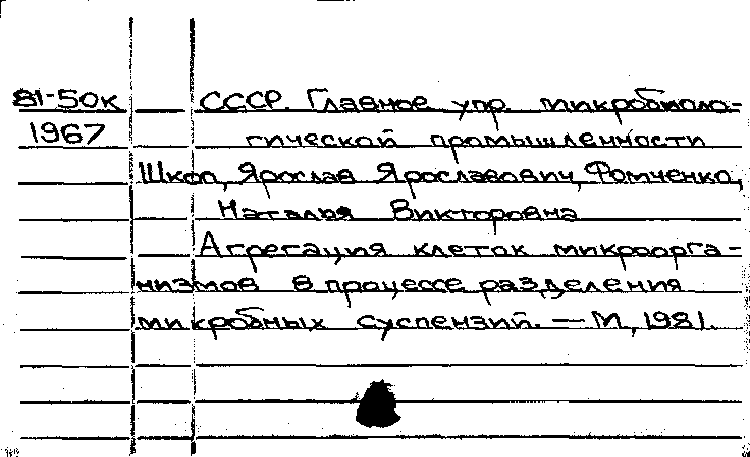 81-50к СССР. Главное упр. микробиоло-
1967 гической промышленности
Шкоп, Ярослав Ярославович, Фомченко,
Наталья Викторовна
Агрегация клеток микроорга-
низмов в процессе разделения
микробных суспензий. — М., 1981.